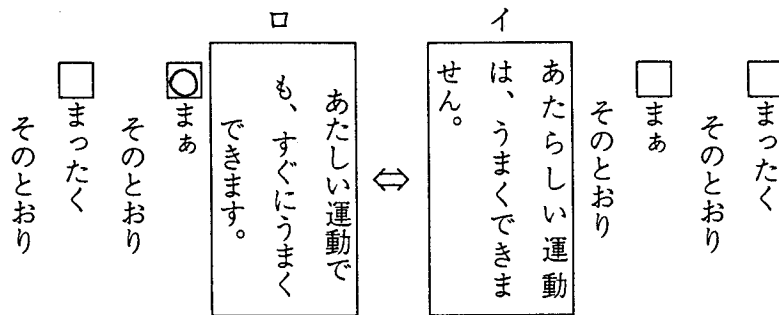 □まったく
そのとおり
□まぁ
そのとおり
イ
あたらしい運動
は、うまくできま
せん。
⇔
ロ
あたしい運動で
も、すぐにうまく
できます。
まぁ
そのとおり
□まったく
そのとおり